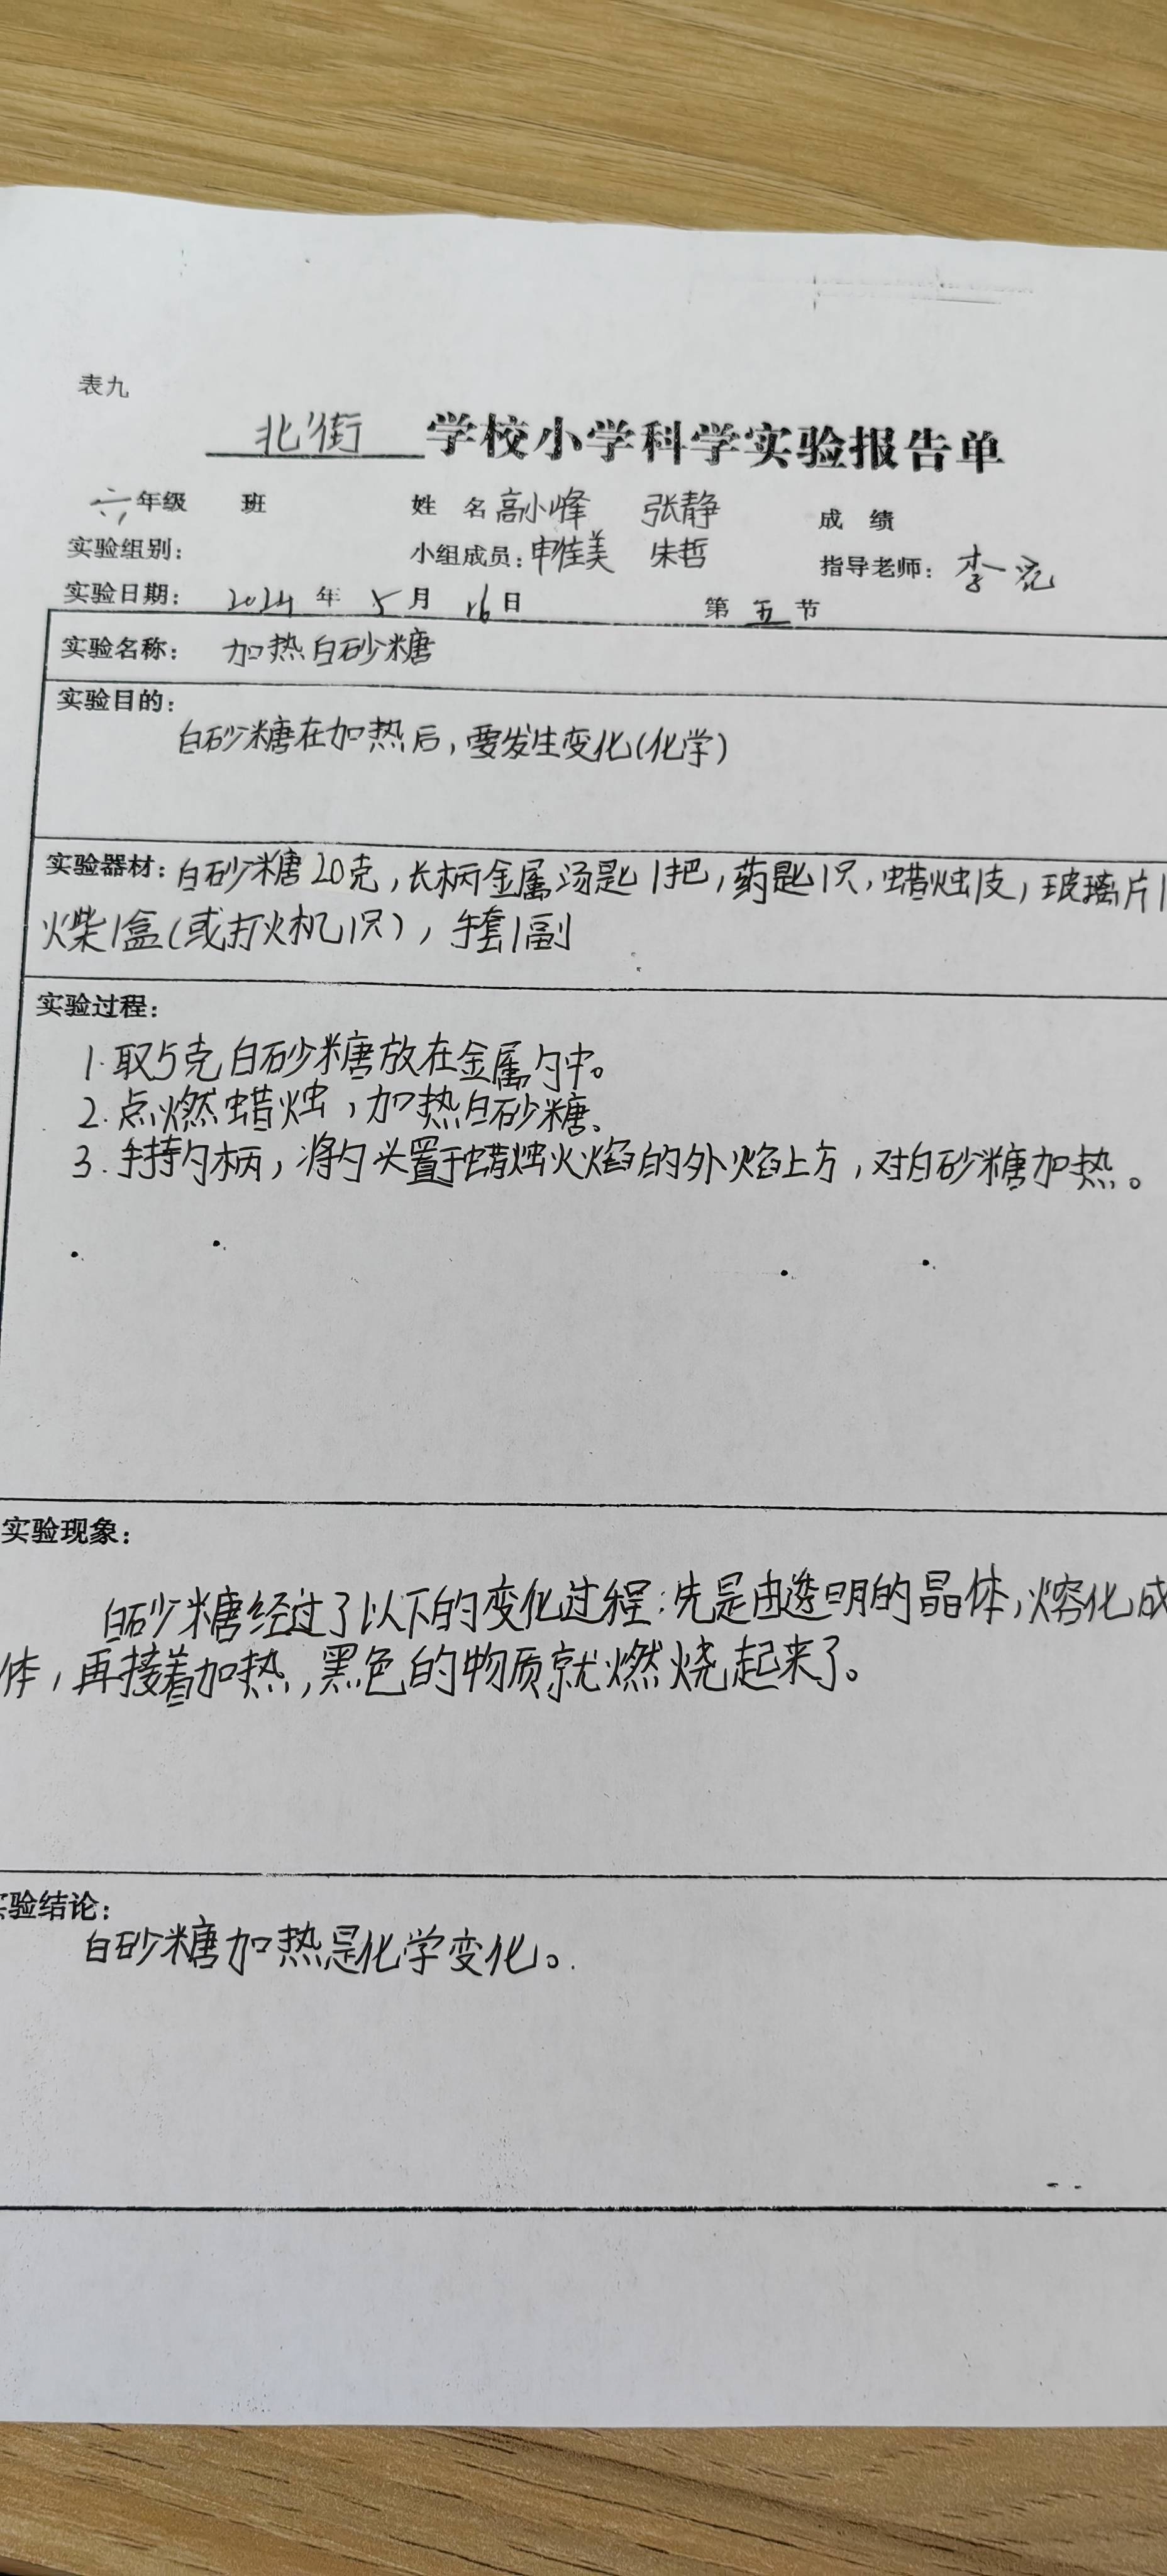 表九
北街 学校小学科学实验报告单
六年级 班 姓 名 高小峰 张静 成 绩
实验组别： 小组成员：申佳美 朱哲 指导老师：李
实验日期： 2024 年 5 月 16 日 第 五 节
实验名称： 加热白砂糖
实验目的：
白砂糖在加热后，要发生变化（化学）
实验器材：白砂糖20克，长柄金属汤匙1把，药匙1只，蜡烛1支，玻璃片1
火柴1盒（或打火机1只），手套1副
实验过程：
1.取5克白砂糖放在金属勺中。
2.点燃蜡烛，加热白砂糖、
3.手持勺柄，将勺头置于蜡烛火焰的外焰上方，对白砂糖加热。
实验现象：
白砂糖经过了以下的变化过程：先是由透明的晶体，熔化成
体，再接着加热，黑色的物质就燃烧起来了。
验结论：
白砂糖加热是化学变化。